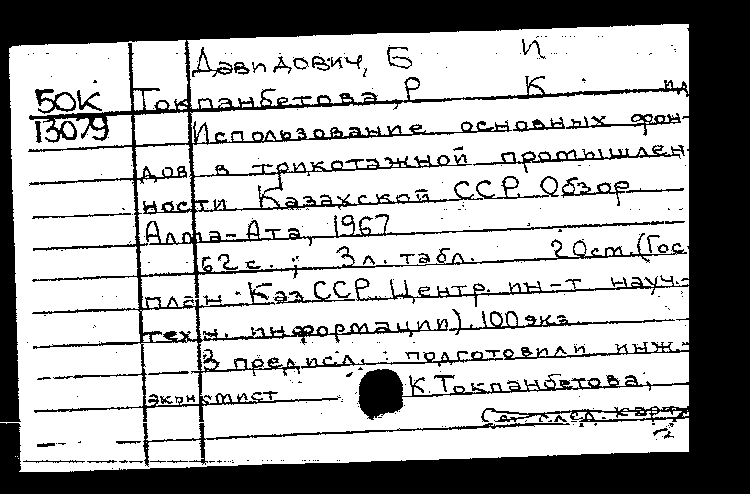 Давидович, Б И
50К Токпанбетова, Р К
13079 Использование основных фон-
дов в трикотажной промышлен-
ности Казахской ССР. Обзор
Алма-Ата, 1967
62 с.; 3 л. табл. 20 см. (Гос.
план Каз.ССР. Центр. ин-т науч.-
техн. информации). 100 экз.
В предисл.: подготовили инж.-
экономист К.Токпанбетова,
См. след. карт
2